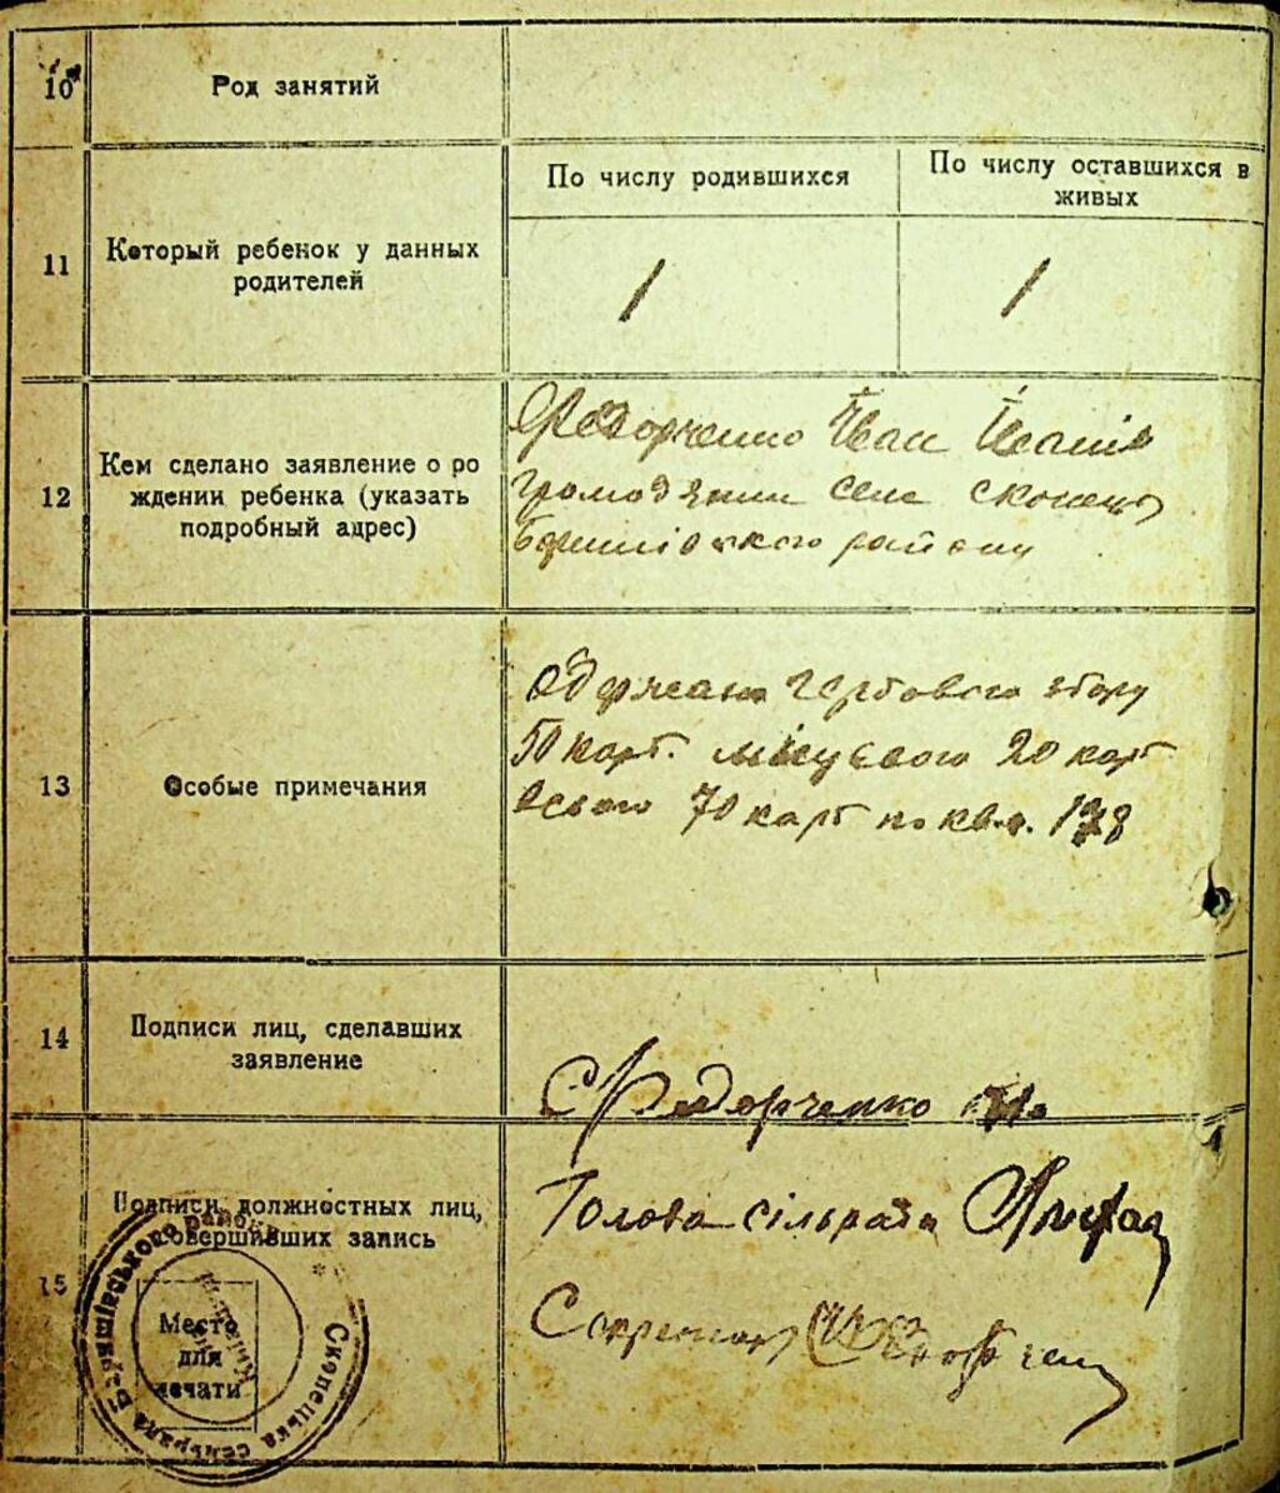 10
Род занятий
11
Который ребенок у данных
родителей
По числу родившихся
По числу оставшихся в
живых
1
1
12
Кем сделано заявление о ро
ждении ребенка (указать
подробный адрес)
Федорченко Іван Іванів
громадянин села Скопець
Баришівского району
13
Особые примечания
Одержано гербового збору
50 карб. місцевого 20 карб
всього 70 карб по кв. 178
14
Подписи лиц, сделавших
заявление
Федорченко
15
Подписи должностных лиц,
совершивших запись
Голова сільради
Секретар
Место
для
печати
Скопецька сельрада Баришівського району